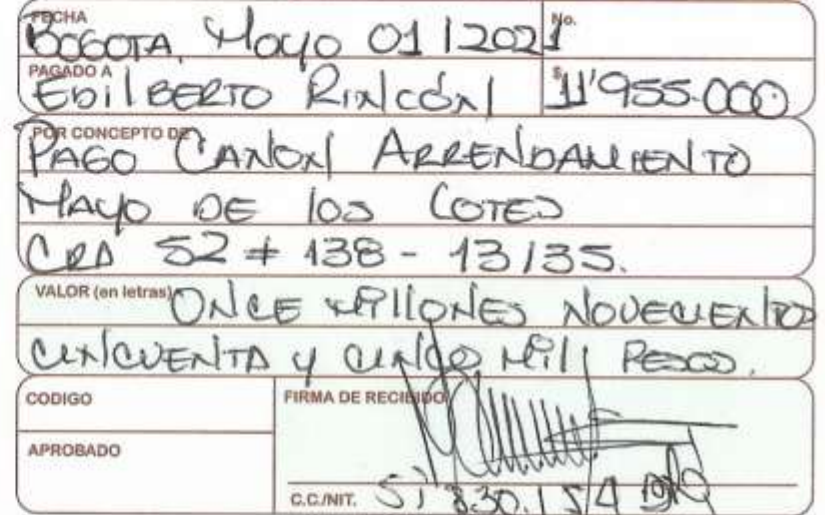 FECHA No.
BOGOTA, Mayo 01 / 2021
PAGADO A $
EDILBERTO RINCÓN 11'955.000
POR CONCEPTO DE
PAGO CANON ARRENDAMIENTO
MAYO DE LOS LOTES
CRA 52 # 138 - 13/35.
VALOR (en letras) ONCE MILLONES NOVECIENTOS
CINCUENTA Y CINCO MIL PESOS.
CODIGO FIRMA DE RECIBIDO
APROBADO
C.C./NIT.